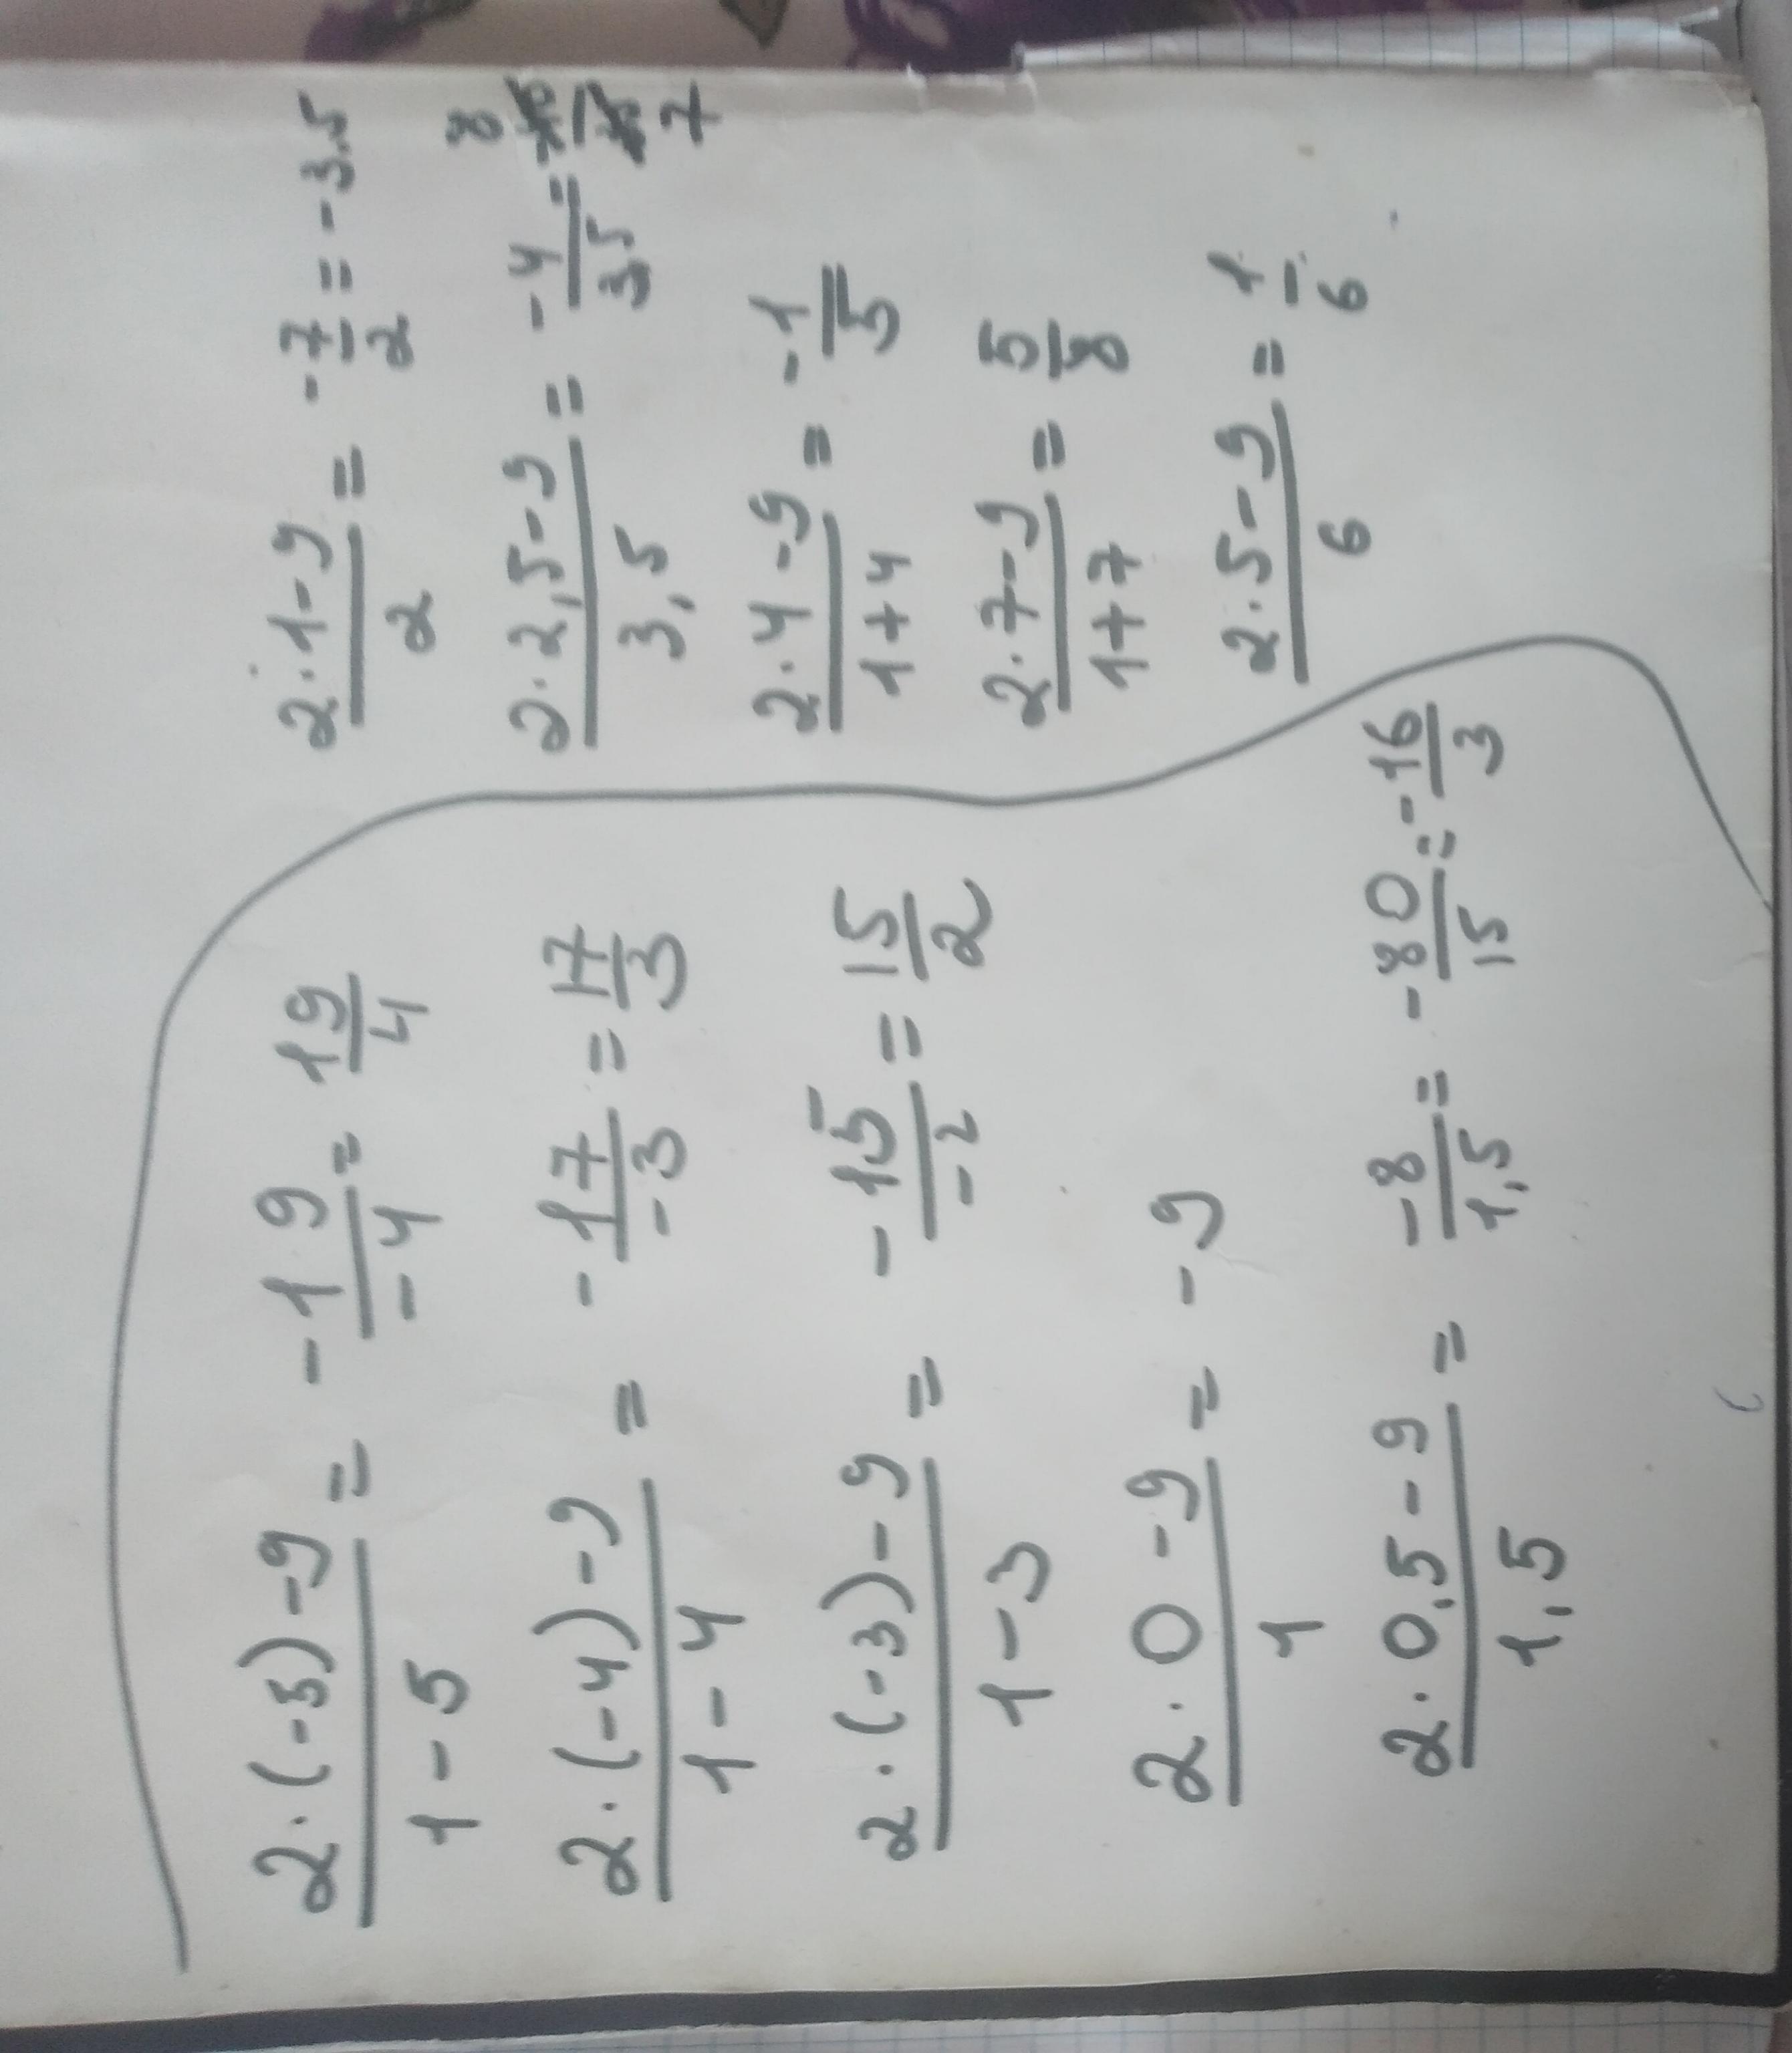 2·(-5)-9/1-5 = -19/-4 = 19/4
2·(-4)-9/1-4 = -17/-3 = 17/3
2·(-3)-9/1-3 = -15/-2 = 15/2
2·0-9/1 = -9
2·0,5-9/1,5 = -8/1,5 = -80/15 = -16/3
2·1-9/2 = -7/2 = -3.5
2·2,5-9/3,5 = -4/3,5 = 8/7
2·4-9/1+4 = -1/5
2·7-9/1+7 = 5/8
2·5-9/6 = 1/6